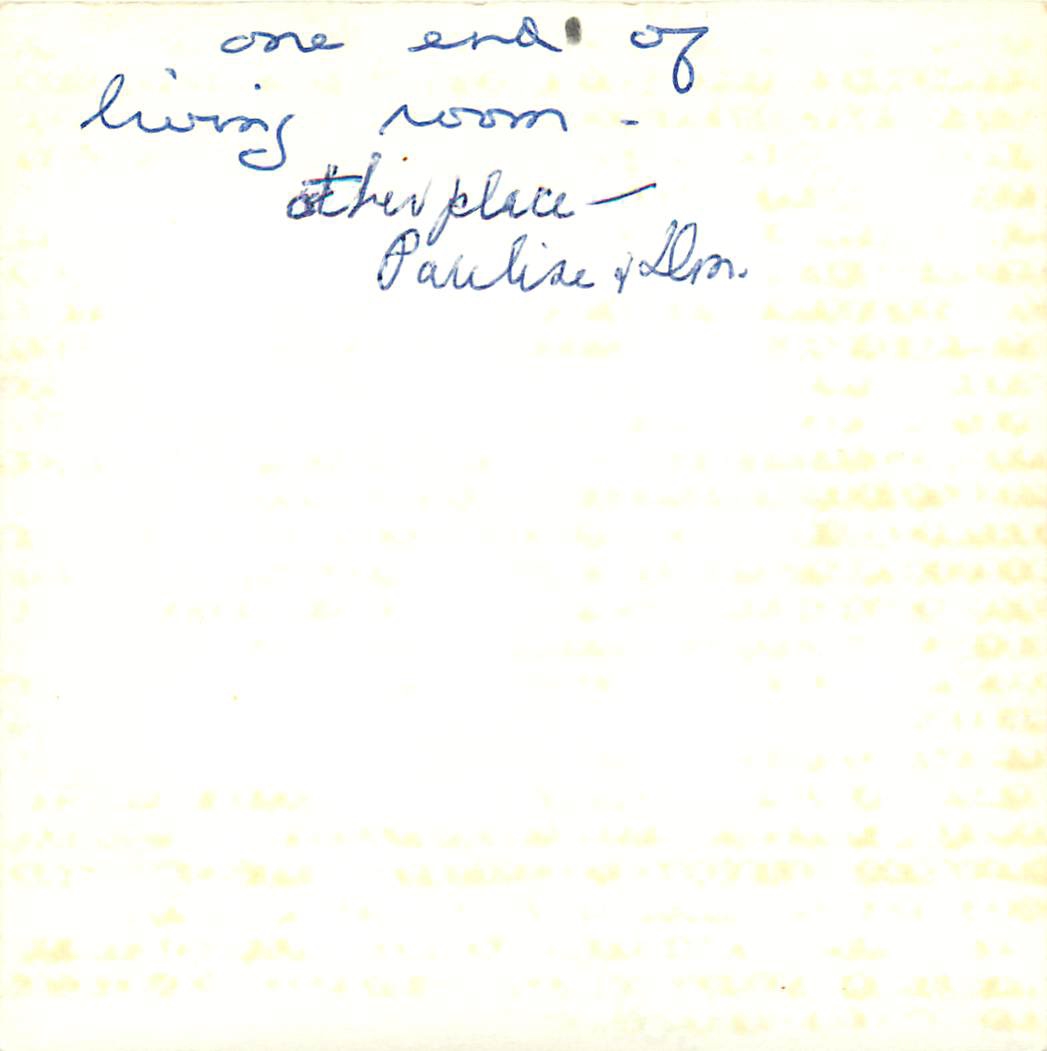 one end of
living room -
other place —
Pauline &